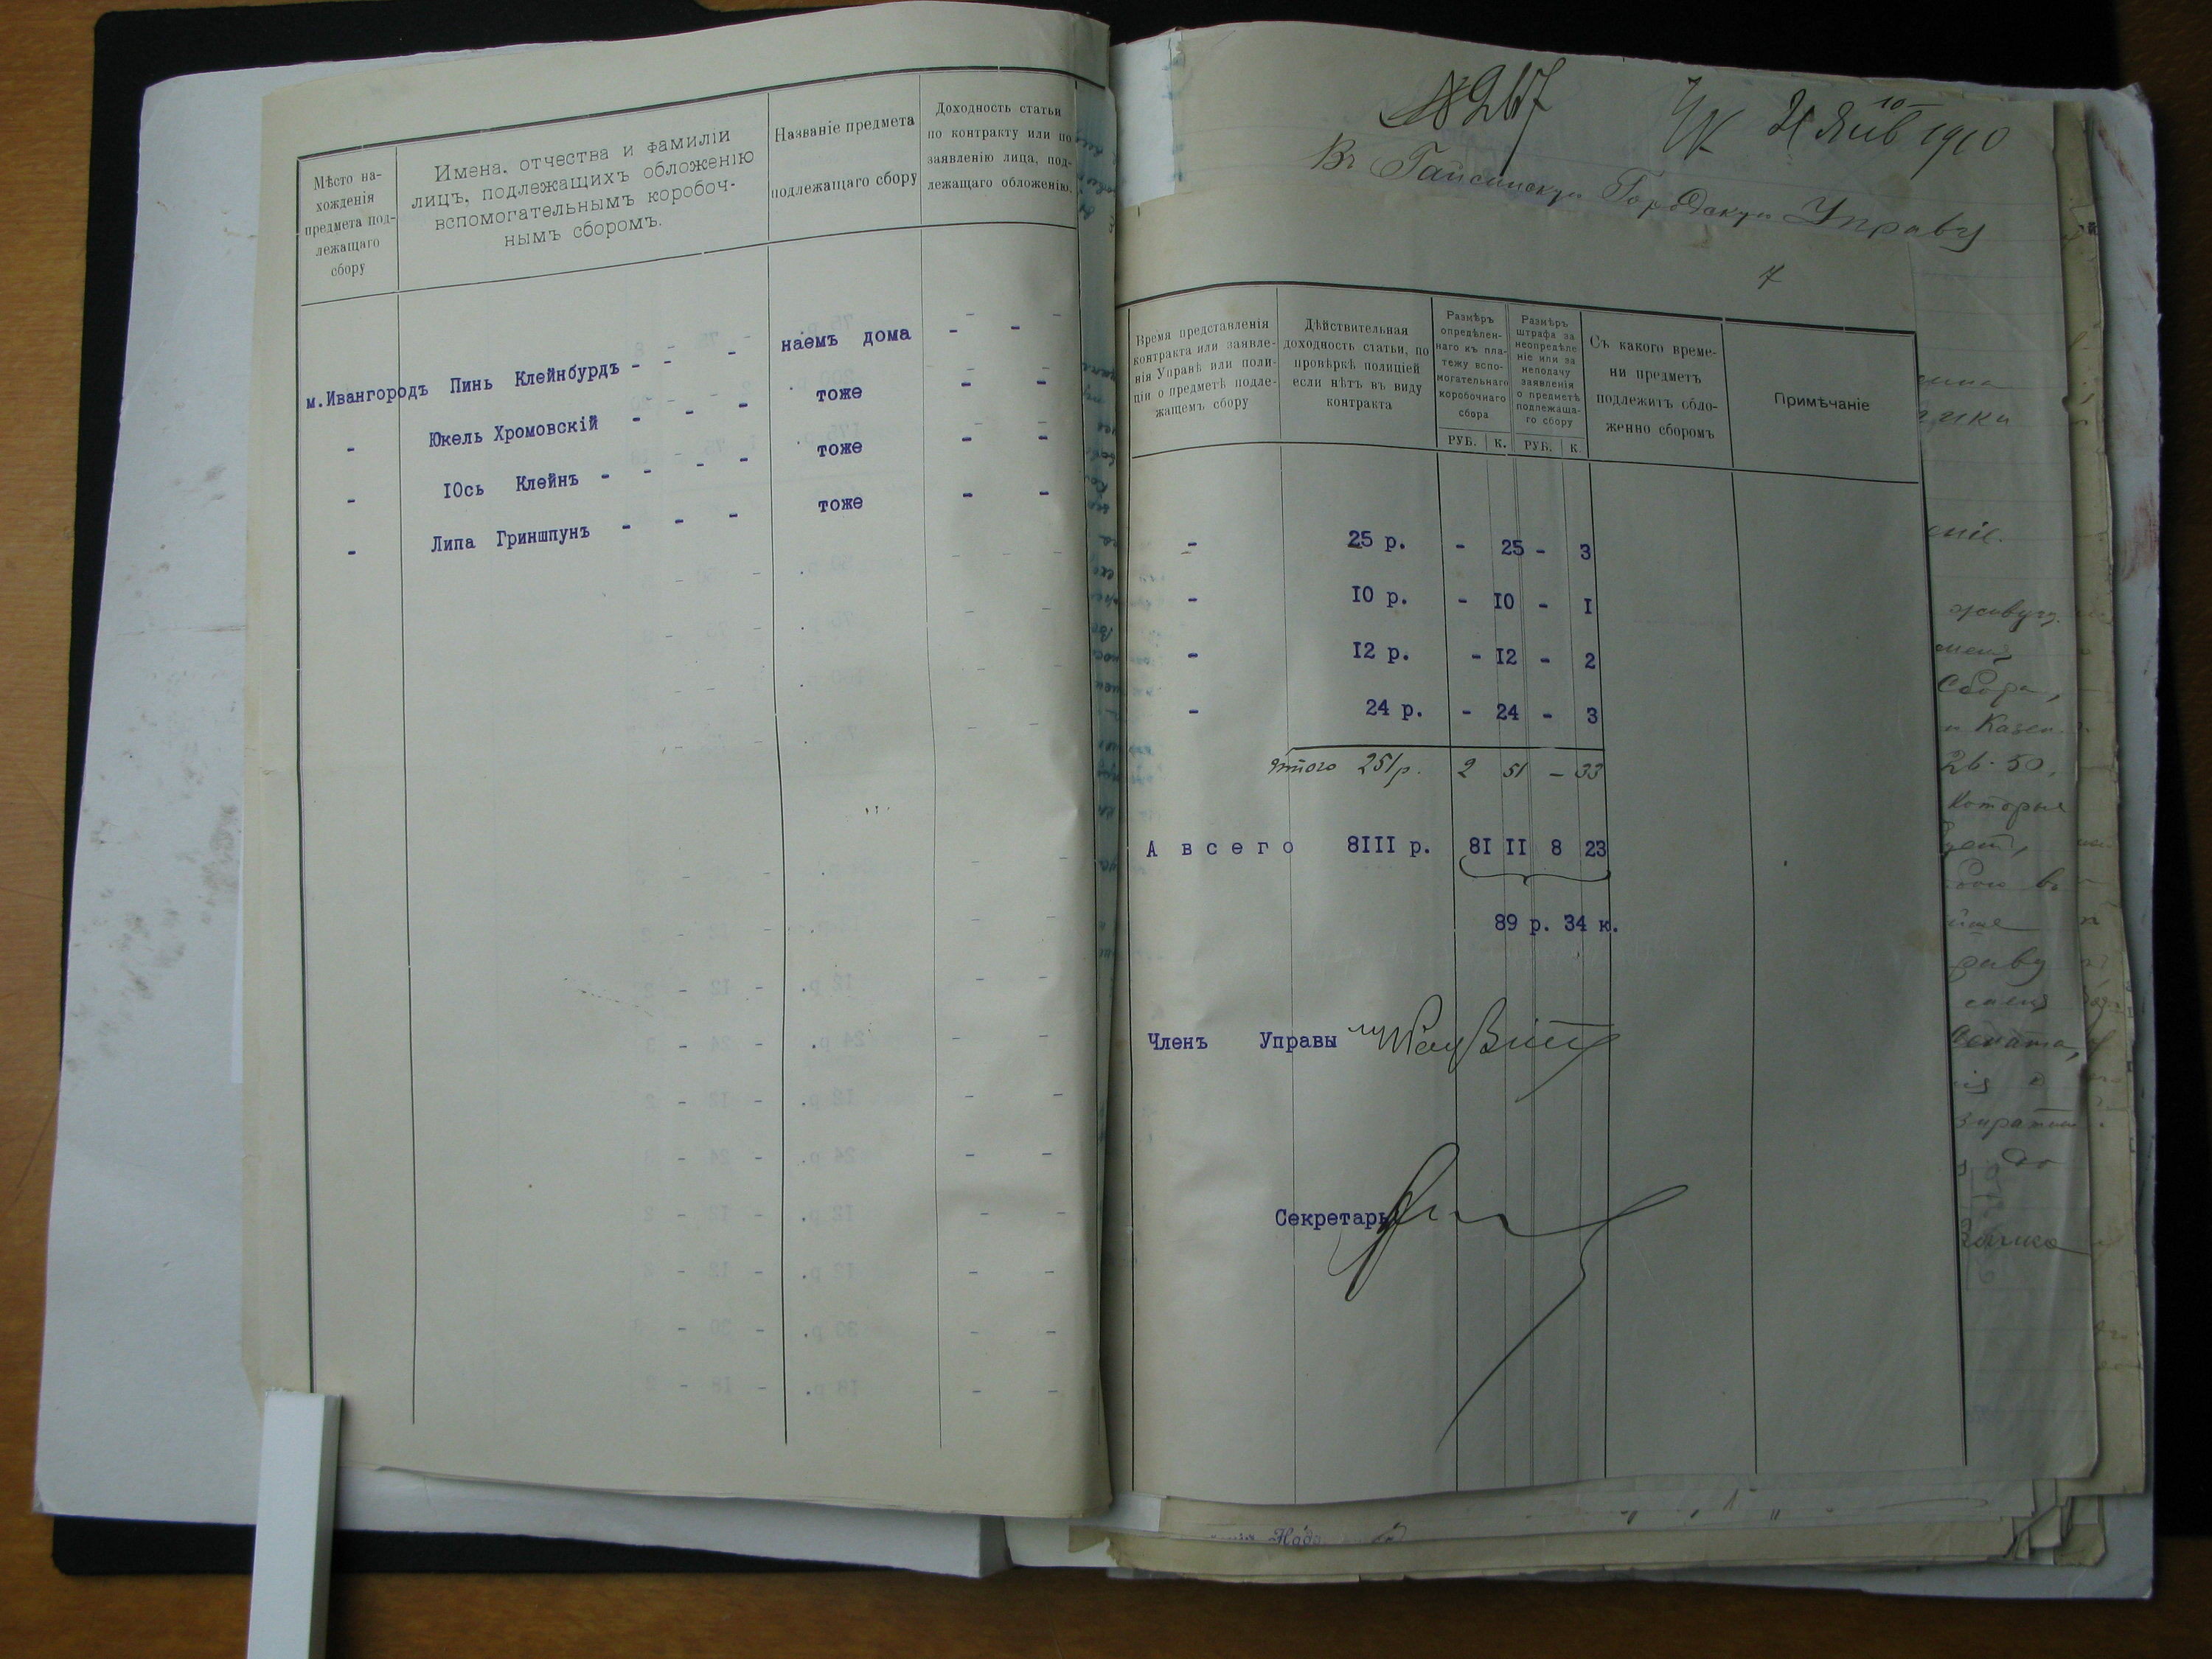 Мѣсто на-
хожденія
предмета под-
лежащаго
сбору
Имена, отчества и фамиліи
лицъ, подлежащихъ обложенію
вспомогательнымъ короboч-
нымъ сборомъ.
Названіе предмета
подлежащаго сбору
Доходность статьи
по контракту или по
заявленію лица, под-
лежащаго обложенію.
м.Ивангородъ Пинь Клейнбурдъ - - - наемъ дома - -
- Юкель Хромовскій - - - тоже - -
- Юсь Клейнъ - - - - тоже - -
- Липа Гриншпунъ - - - тоже - -
№ 267
21 Янв 1910
Въ Гайсинскую Городскую Управу
7
Время представленія
контракта или заявле-
нія Управѣ или поли-
ціи о предметѣ подле-
жащемъ сбору
Дѣйствительная
доходность статьи, по
провѣркѣ полиціей
если нѣтъ въ виду
контракта
Размѣръ
опредѣлен-
наго къ пла-
тежу вспо-
могательнаго
коробочнаго
сбора
РУБ. К.
Размѣръ
штрафа за
неопредѣле
ніе или за
неподачу
заявленія
о предметѣ
подлежаща-
го сбору
РУБ. К.
Съ какого време-
ни предметъ
подлежитъ обло-
женію сборомъ
Примѣчаніе
- 25 р. - 25 - 3
- 10 р. - 10 - 1
- 12 р. - 12 - 2
- 24 р. - 24 - 3
Итого 251 р. 2 51 - 33
А всего 8III р. 8I II 8 23
89 р. 34 к.
Членъ Управы
Секретарь
Сбора,
и Казен.
26.50.
Которыя